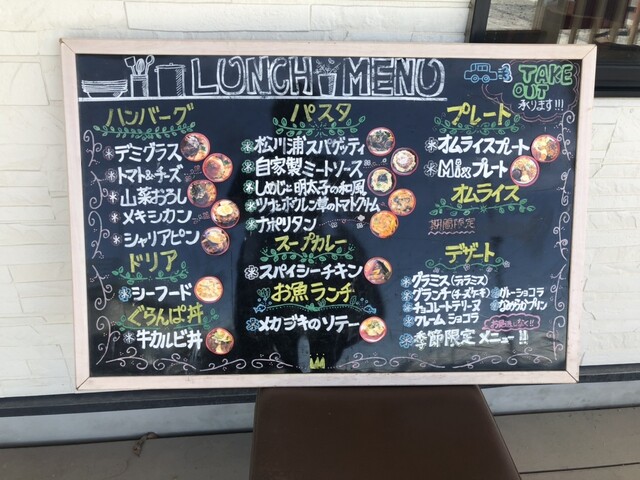 LUNCH MENU
TAKE OUT
承ります!!!
ハンバーグ
デミグラス
トマト&チーズ
山菜おろし
メキシカン
シャリアピン
ドリア
シーフード
ぐらんぱ丼
牛カルビ丼
パスタ
松川浦スパゲッティ
自家製ミートソース
しめじと明太子の和風
ツナとホウレン草のトマトクリーム
ナポリタン
スープカレー
スパイシーチキン
お魚ランチ
メカジキのソテー
プレート
オムライスプレート
Mixプレート
オムライス
期間限定
デザート
グラミス(テラミス)
グランチ(チーズケーキ)
チョコレートテリーヌ
クレーム ショコラ
ガトーショコラ
季節限定メニュー!!